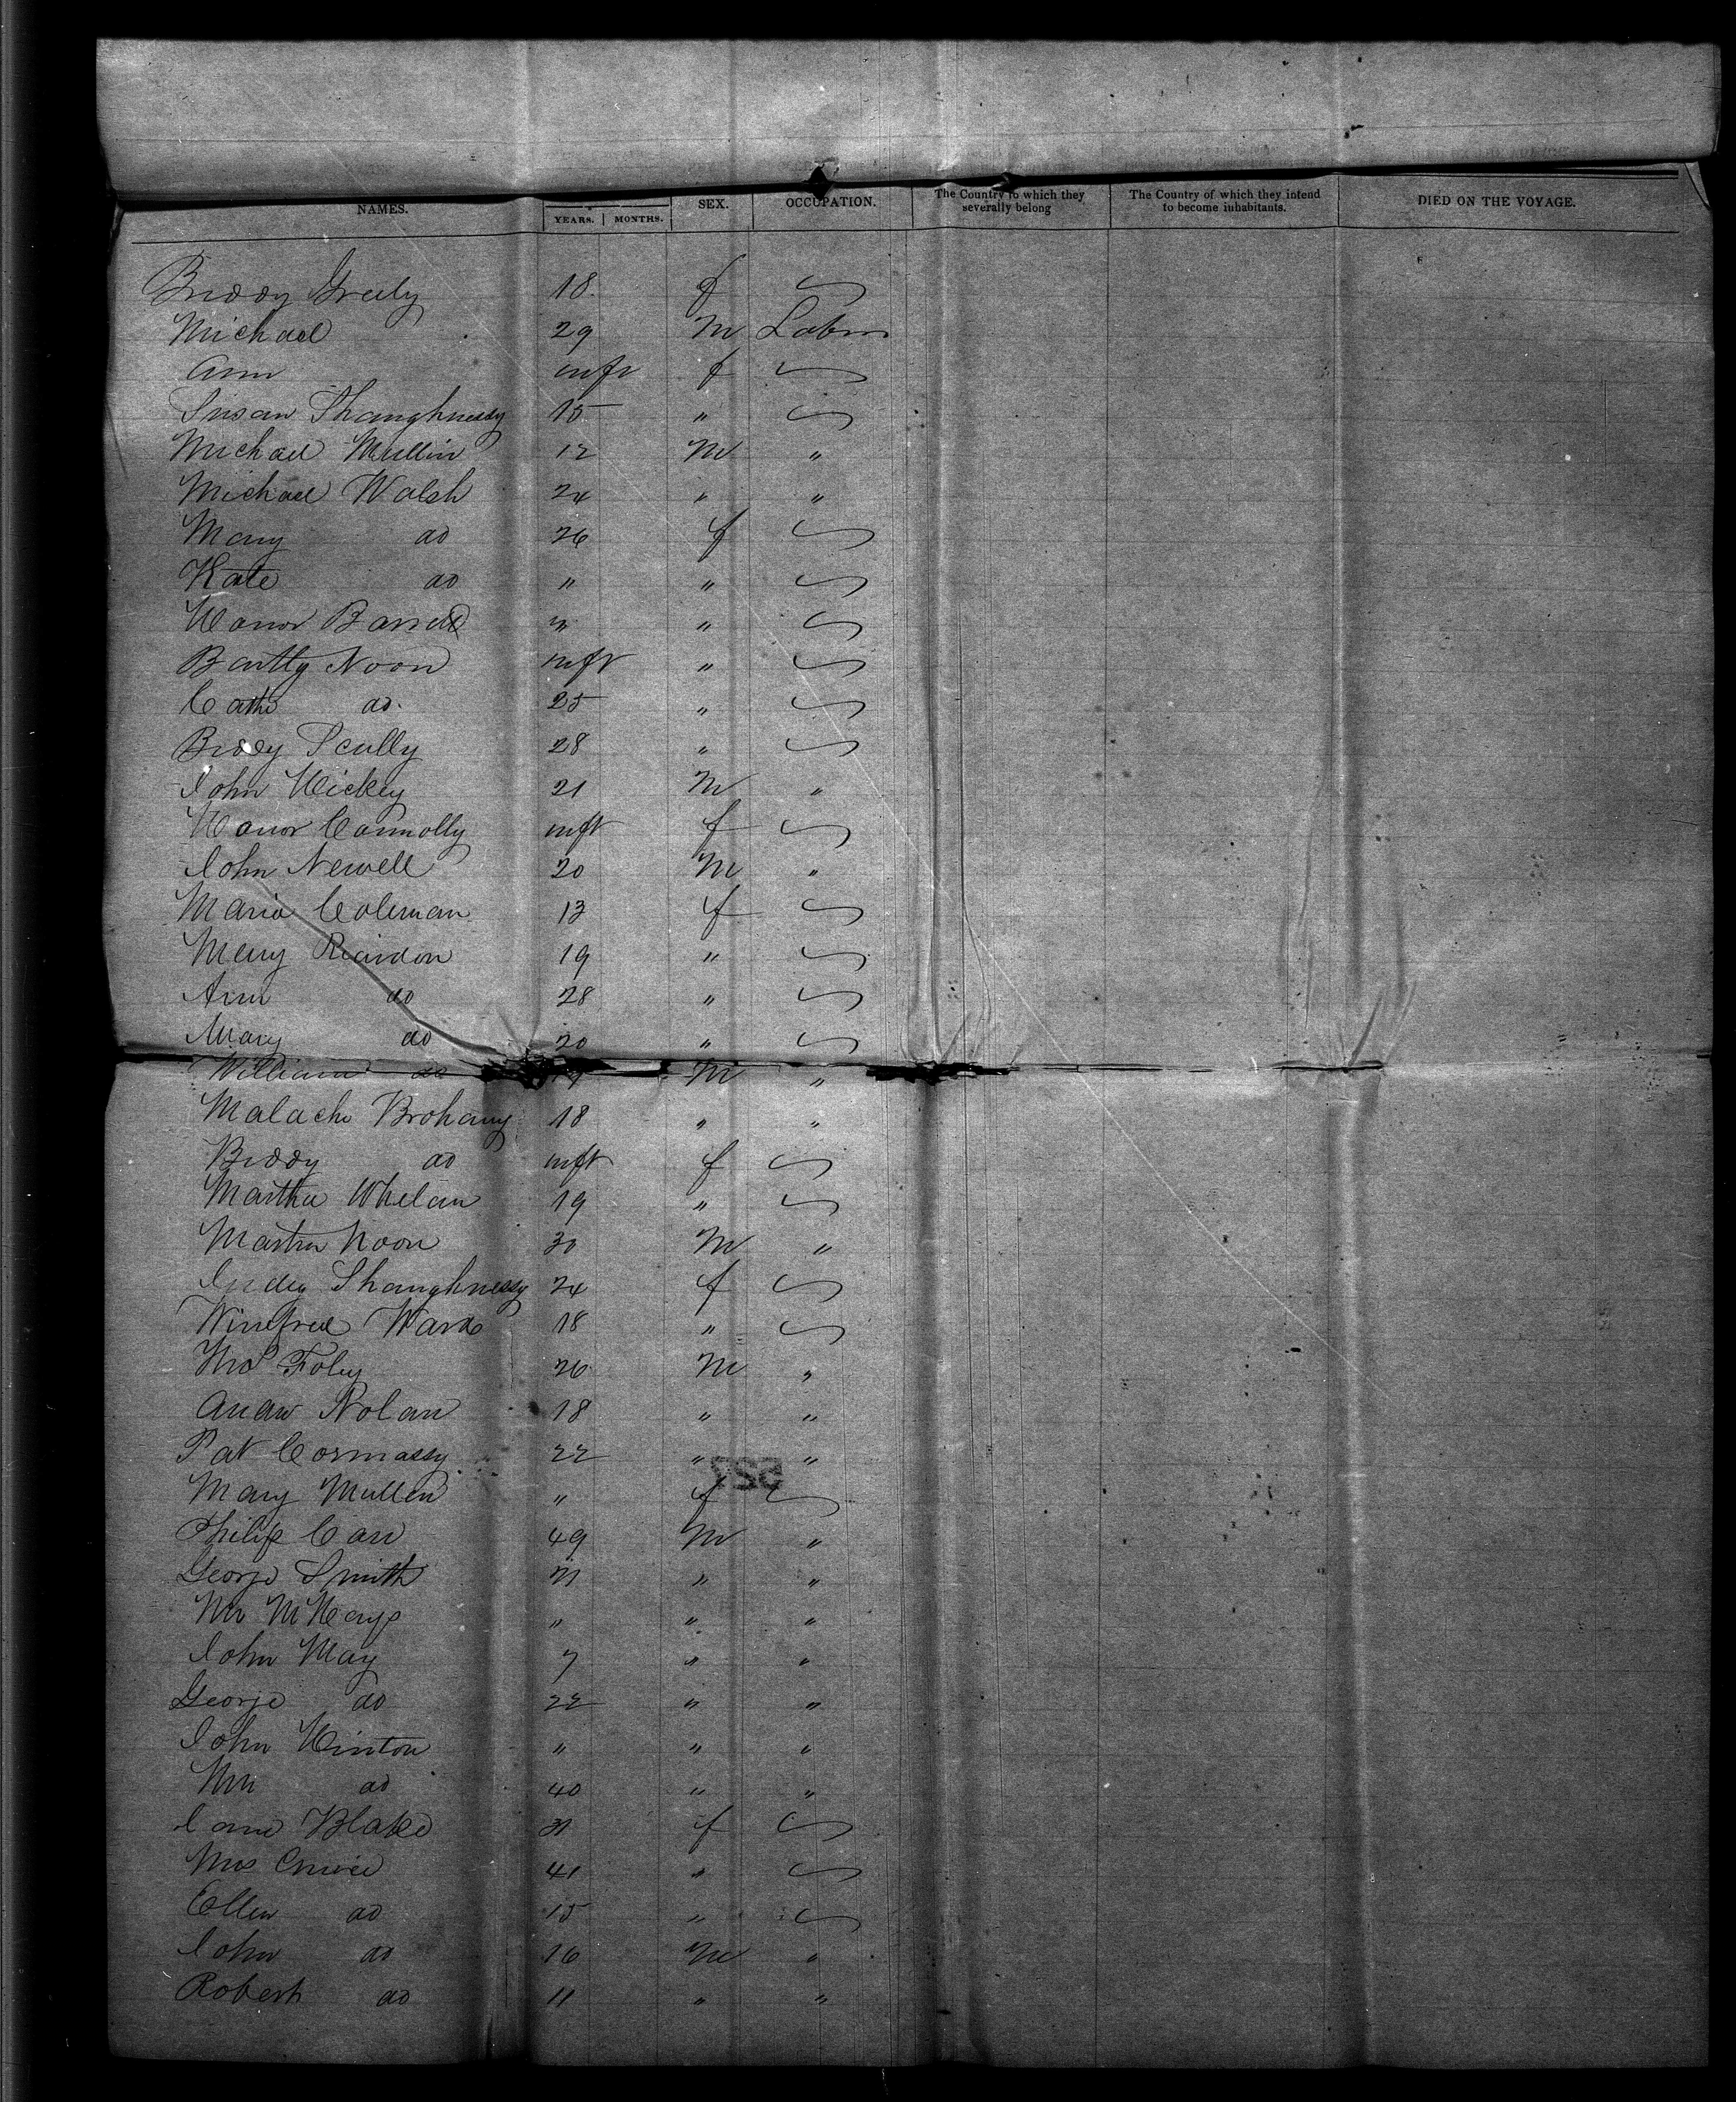 NAMES. YEARS. MONTHS. SEX. OCCUPATION. The Country to which they severally belong The Country of which they intend to become inhabitants. DIED ON THE VOYAGE.
Biddy Greely 18 f
Michael 29 M Labor
Ann inft f
Susan Shaughnessy 15 "
Michael Mullin 12 M "
Michael Walsh 24 " "
Mary do 26 f
Kate do " "
Honor Barrett " "
Bartly Noon inft "
Cath do 25 "
Bidey Scully 28 "
John Hickey 21 M "
Honor Connolly inft f
John Newell 20 M "
Maria Coleman 13 f
Mary Riardon 19 "
Ann do 28 "
Mary do 20 "
William do M "
Malachi Brohany 18 " "
Biddy do inft f
Martha Whelan 19 "
Martin Noon 30 M "
Shaughnessy 24 f
Winifred Ward 18 "
Thos Foley 26 M "
Andw Nolan 18 " "
Pat Cormassy 22 " "
527
Mary Mullen " f
Philip Carr 49 M "
George Smith 21 " "
Mr McHays " " "
John May 7 " "
George do 22 " "
John Hinton " " "
Mr do 40 " "
Jane Blake 31 f
Mrs 41 "
Ellen do 15 "
John do 16 M "
Robert do 11 " "